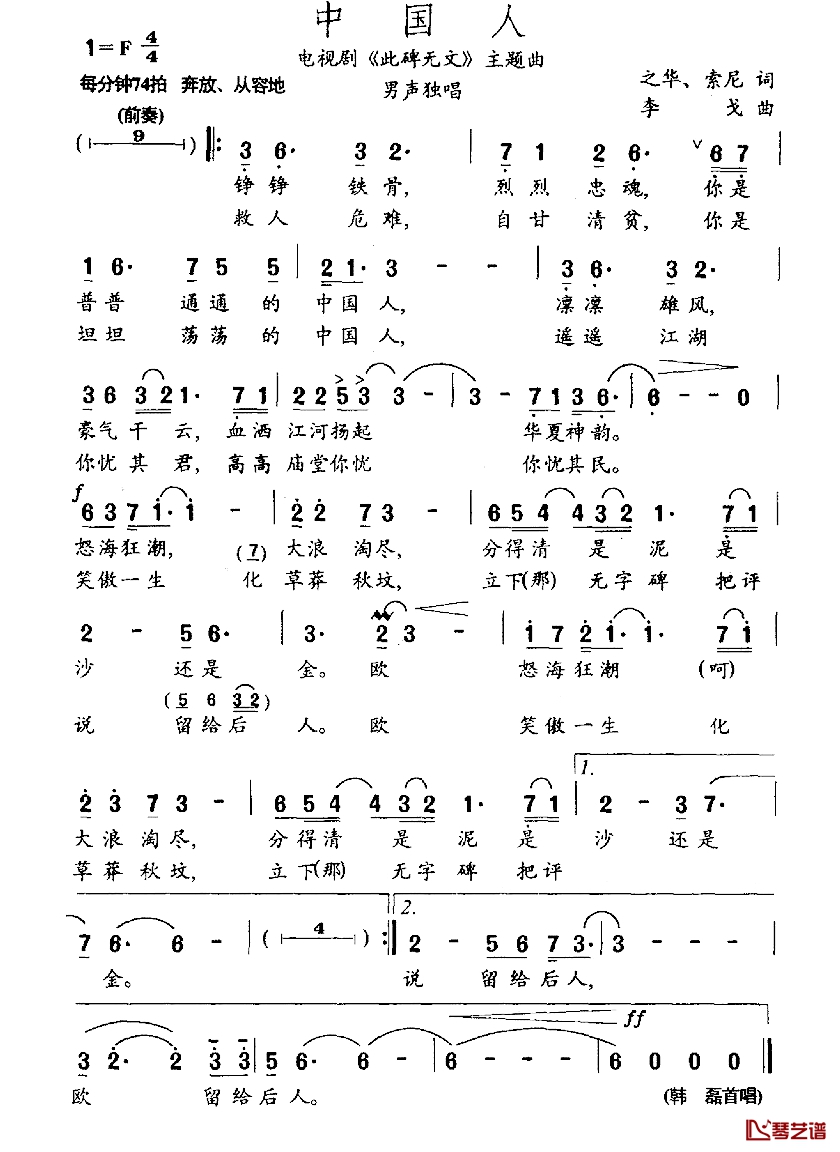 中国人
1=F 4/4
电视剧《此碑无文》主题曲
每分钟74拍 奔放、从容地
男声独唱
之华、索尼 词
李戈 曲
(前奏)
( 9 ) 3 6· 3 2· | 7 1 2 6· ∨ 6 7
铮铮 铁骨, 烈烈忠魂, 你是
救人 危难, 自甘清贫, 你是
1 6· 7 5 5 | 2 1· 3 - - | 3 6· 3 2·
普普 通通的 中国人, 凛凛 雄风,
坦坦 荡荡的 中国人, 遥遥 江湖
3 6 3 2 1· 7 1 | 2 2 5 3 3 - | 3 - 7 1 3 6· | 6 - - 0
豪气干云, 血洒 江河扬起 华夏神韵。
你忧其君, 高高 庙堂你忧 你忧其民。
f
6 3 7 1· 1 - | 2 2 7 3 - | 6 5 4 4 3 2 1· 7 1
怒海狂潮, (7) 大浪 淘尽, 分得清 是 泥 是
笑傲一生 化 草莽 秋坟, 立下(那) 无字碑 把评
2 - 5 6· | 3· 2 3 - | 1 7 2 1· 1· 7 1
沙 还是 金。欧 怒海狂潮 (呵)
( 5 6 3 2 )
说 留给后 人。欧 笑傲一生 化
1.
2 3 7 3 - | 6 5 4 4 3 2 1· 7 1 | 2 - 3 7·
大浪淘尽, 分得清 是 泥 是 沙 还是
草莽秋坟, 立下(那) 无字碑 把评
2.
7 6· 6 - | ( 4 ) 2 - 5 6 7 3· | 3 - - -
金。 说 留给后人,
ff
3 2· 2 3 3 | 5 6· 6 - | 6 - - - | 6 0 0 0
欧 留给后人。 (韩磊首唱)
琴艺谱